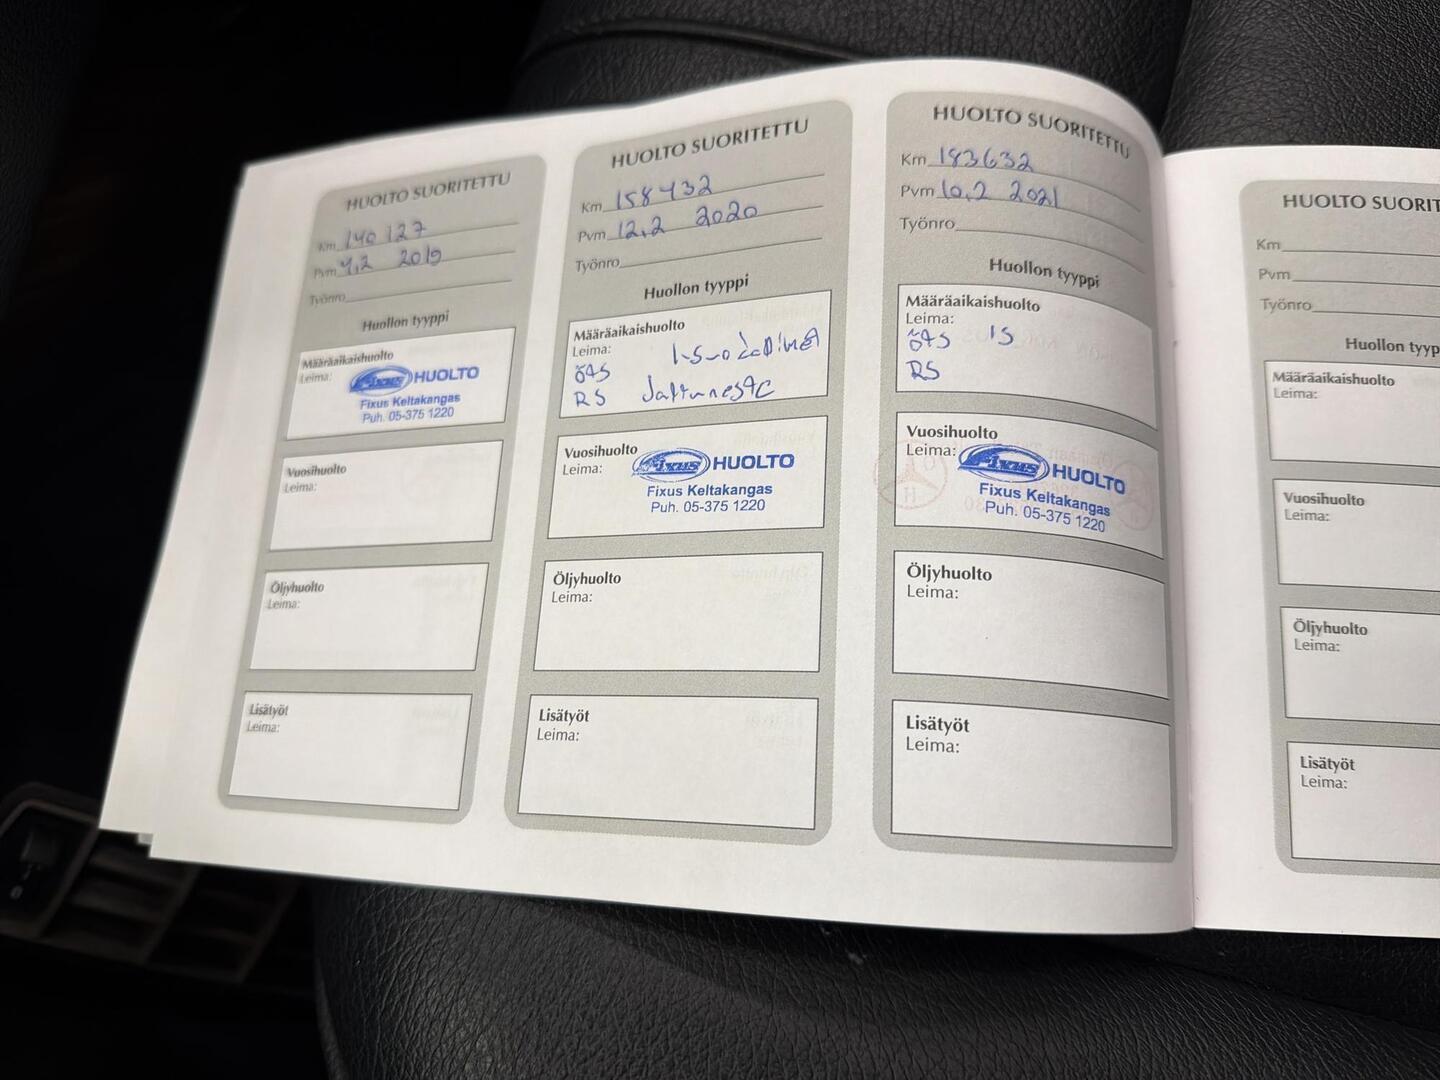 HUOLTO SUORITETTU
Km 140 127
Pvm 4.2 2019
Työnro
Huollon tyyppi
Määräaikaishuolto
Leima:
Fixus HUOLTO
Fixus Keltakangas
Puh. 05-375 1220
Vuosihuolto
Leima:
Öljyhuolto
Leima:
Lisätyöt
Leima:
HUOLTO SUORITETTU
Km 158432
Pvm 12.2 2020
Työnro
Huollon tyyppi
Määräaikaishuolto
Leima:
ÖAS
RS
Vuosihuolto
Leima:
Fixus HUOLTO
Fixus Keltakangas
Puh. 05-375 1220
Öljyhuolto
Leima:
Lisätyöt
Leima:
HUOLTO SUORITETTU
Km 183632
Pvm 10.2 2021
Työnro
Huollon tyyppi
Määräaikaishuolto
Leima:
ÖAS IS
RS
Vuosihuolto
Leima:
Fixus HUOLTO
Fixus Keltakangas
Puh. 05-375 1220
Öljyhuolto
Leima:
Lisätyöt
Leima:
HUOLTO SUORIT
Km
Pvm
Työnro
Huollon typp
Määräaikaishuolto
Leima:
Vuosihuolto
Leima:
Öljyhuolto
Leima:
Lisätyöt
Leima: